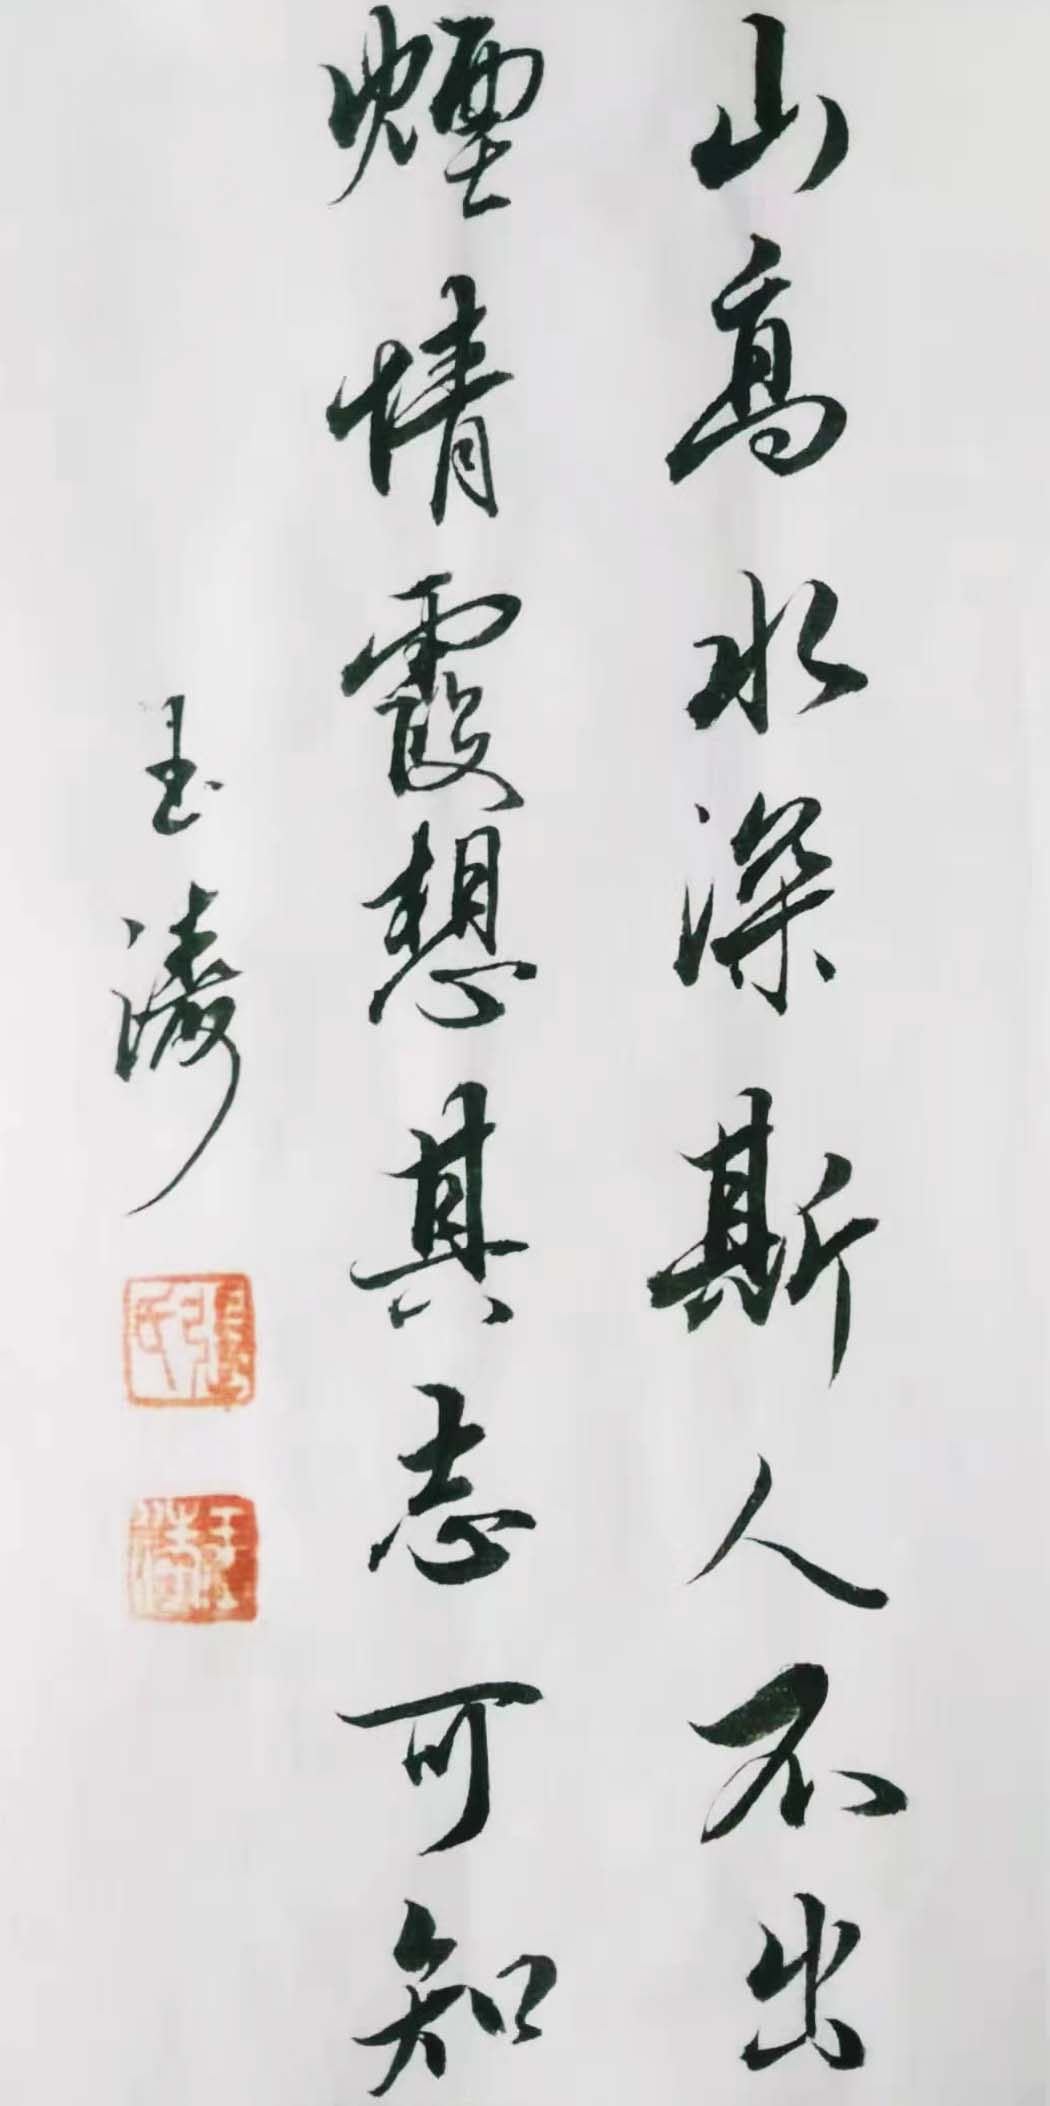 山高水深斯人不出
煙情霞想其志可知
玉濤